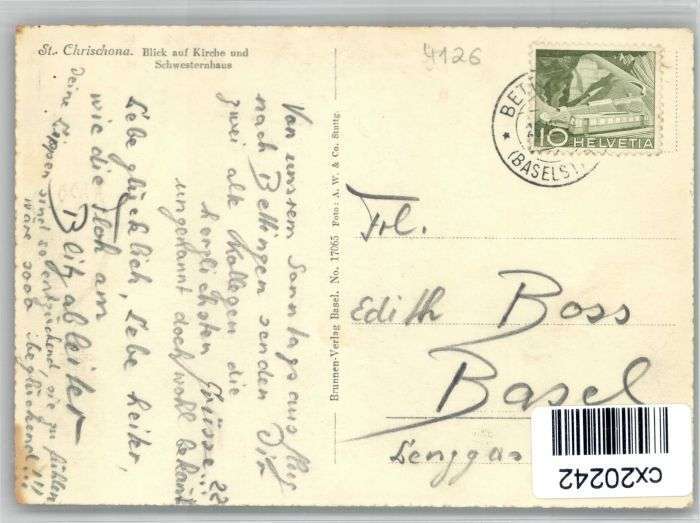 St. Chrischona. Blick auf Kirche und
Schwesternhaus
4126
BET
(BASELST
10
HELVETIA
Von unsrem Sonntagsausflug
nach Bettingen senden Dir
zwei alte Kollegen die
herzlichsten Grüsse!!
ungekannt doch wohl bekannt
Lebe glücklich, Lebe heiter,
wie die Floh am
Blitzableiter
Deine Lippen sind so entzückend, sie zu fühlen
wäre sooo beglückend!!!
Brunnen-Verlag Basel. No. 17065 Foto: A. W. & Co. Stuttg.
Frl.
Edith Boss
Basel
Lenggas
cx20242